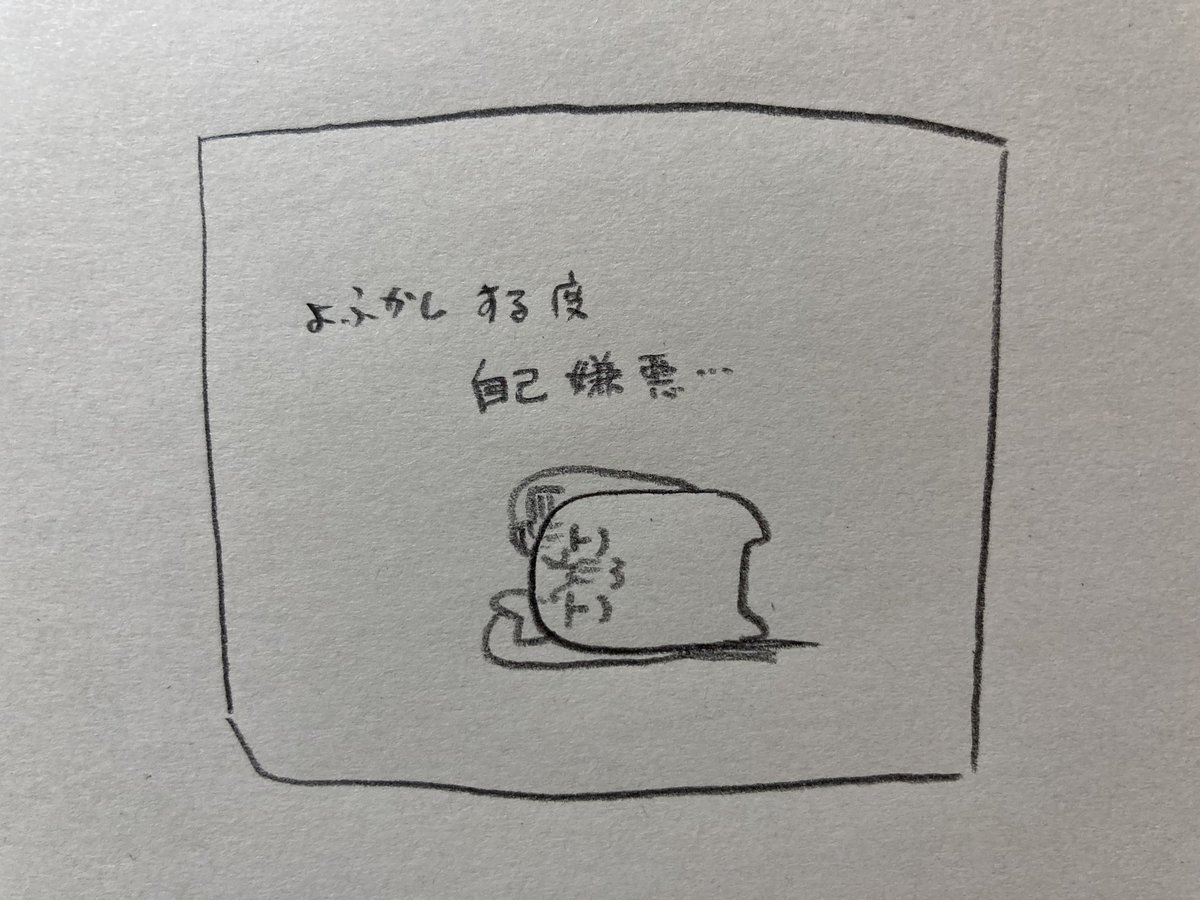 よふかしする度
自己嫌悪…